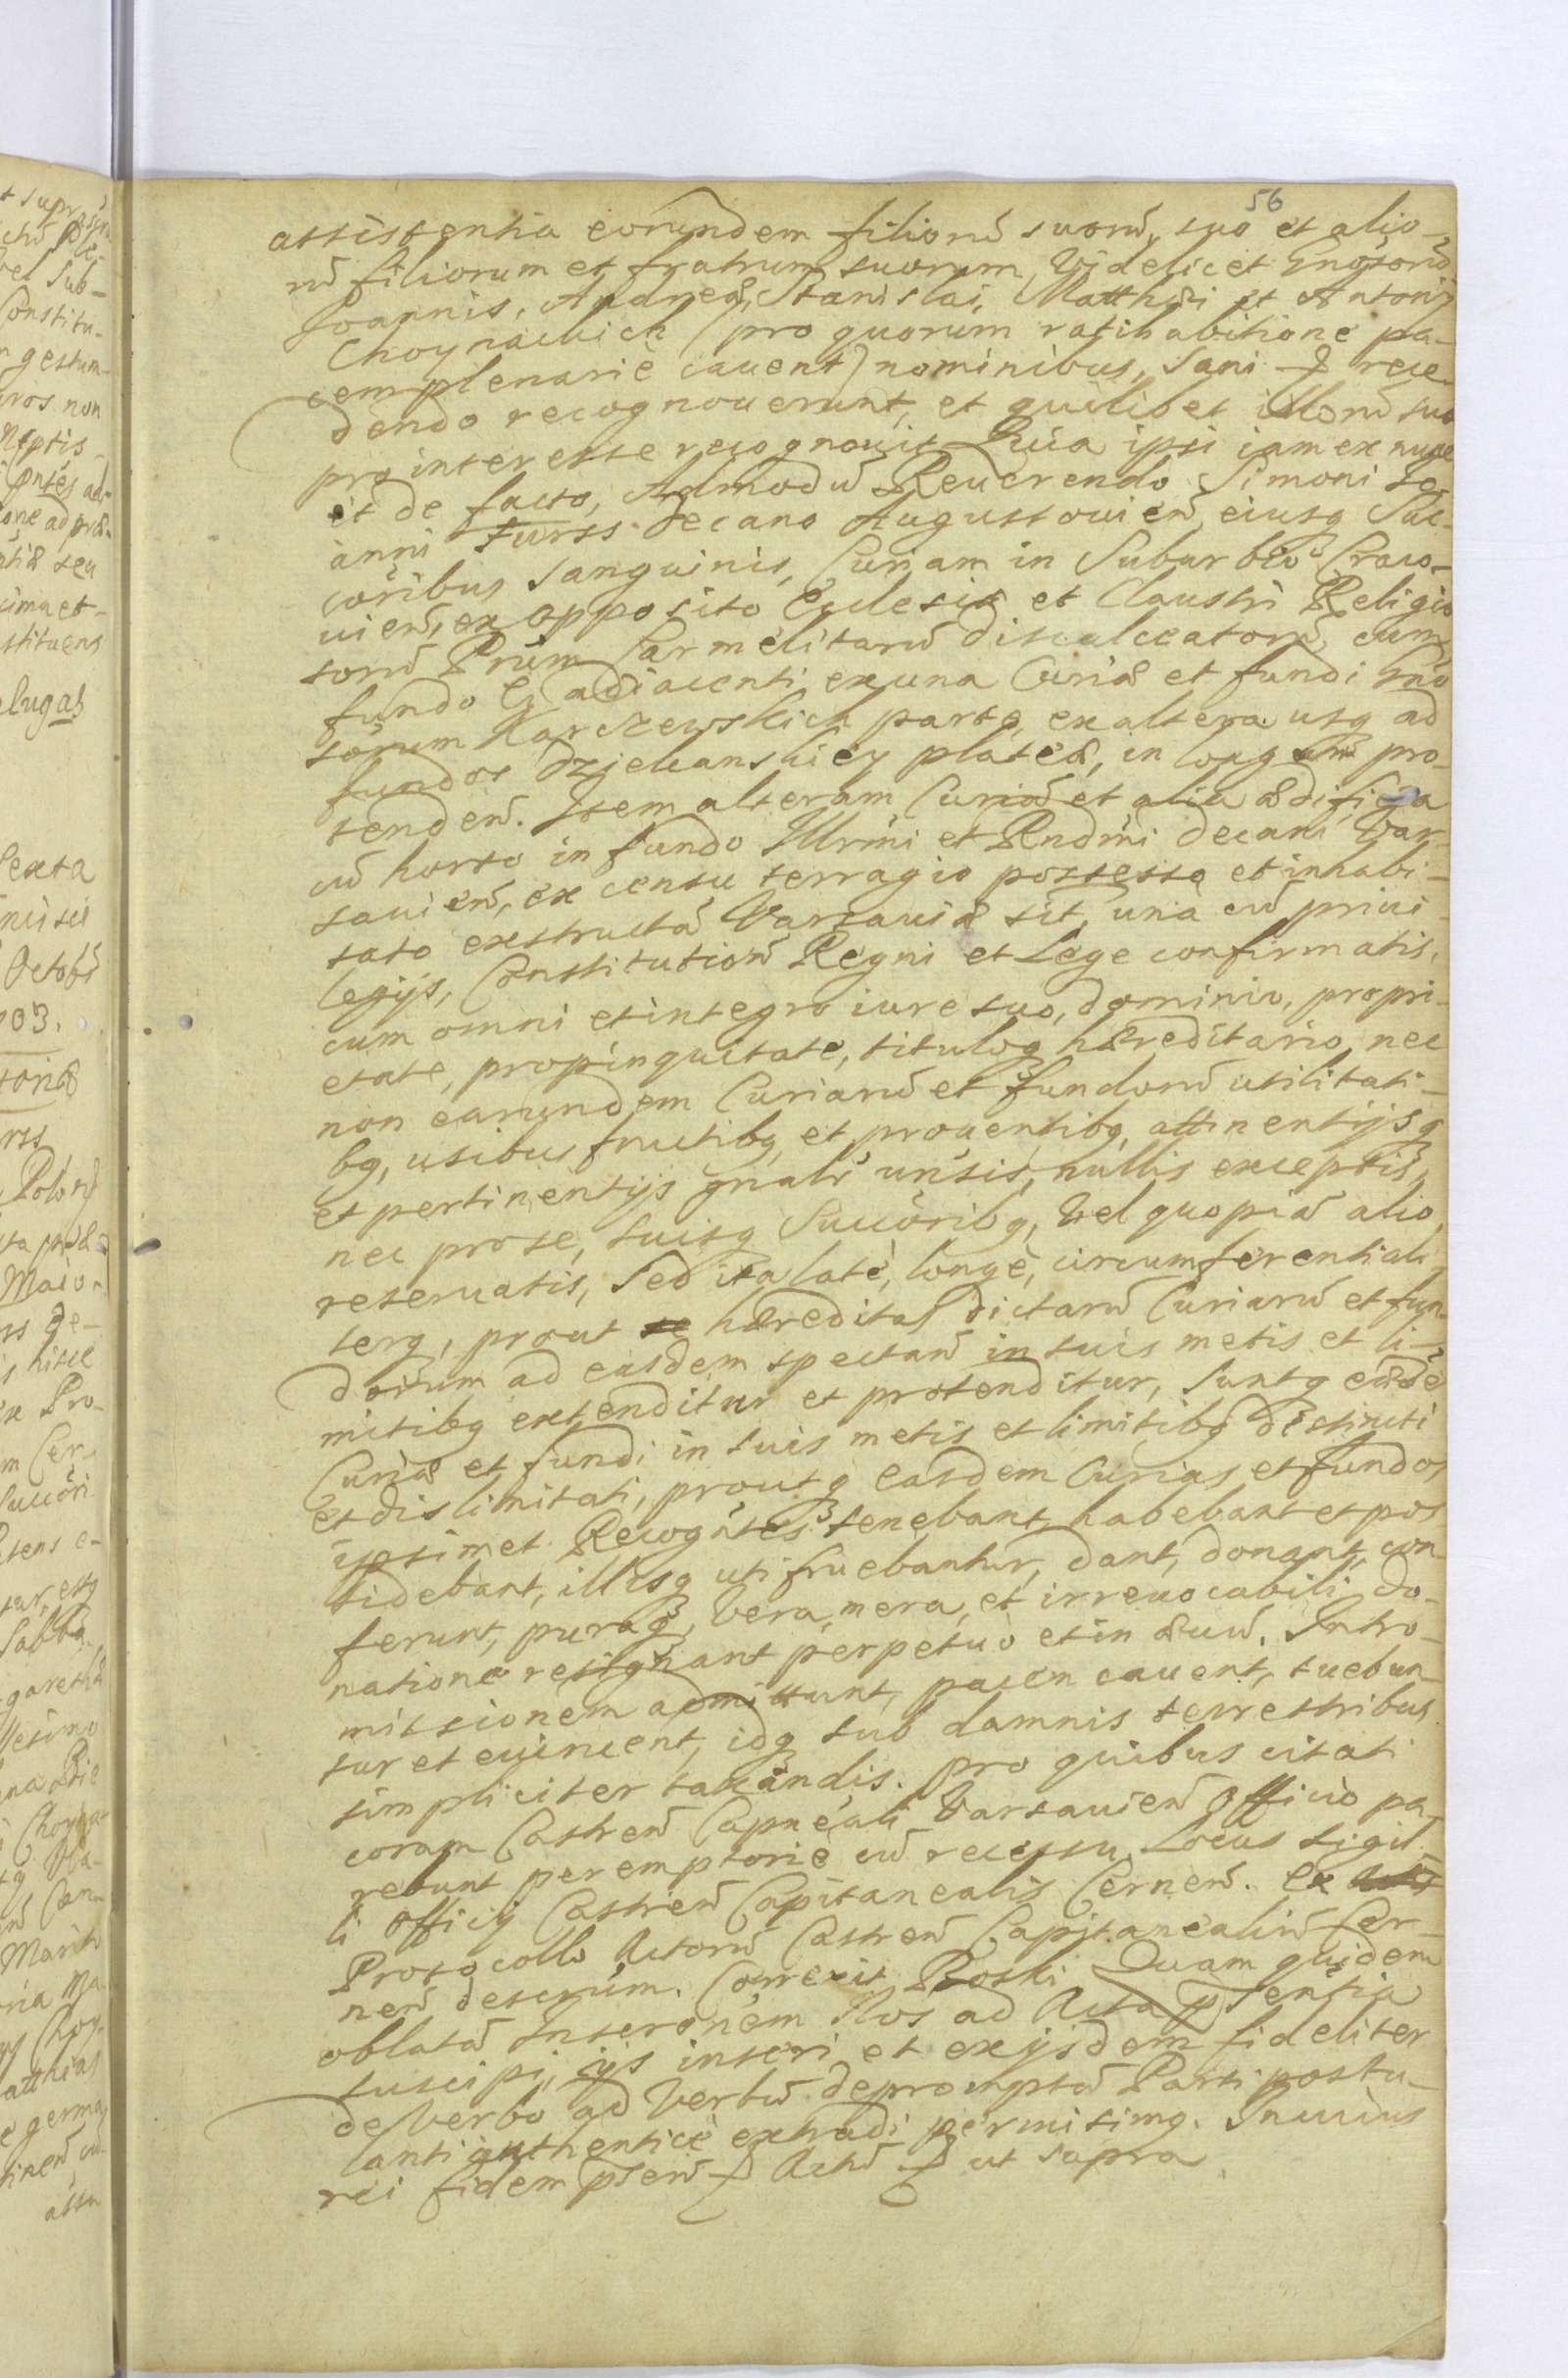 56
assistentia eorundem filiorũ suorũ, suo et alio-
rũ filiorum et fratrum suorum, Videlicet Gnõsorũ
Joannis, Andreæ, Stanislai, Matthæi et Antonij
Choynawich (pro quorum ratihabitione pa-
cem plenarie cauent) nominibus, Sani & rece-
dendo recognouerunt, et quilibet illorũ suo
pro interesse recognouit Quia ipsi iam ex nunc
et de facto, Admodũ Reuerendo Simoni Jo-
anni Turss Decano Augustouien̄, eiusq Suc-
cõribus Sanguinis, Curiam in Suburbio Craco-
uien̄, ex opposito Ecclesiæ et Claustri Religio-
sorũ Prũm Carmelitarũ discalceatorũ, cum
fundo ei adiacenti ex una Curiæ et fundi Gnõ-
sorum Karczewskich parte, ex altera usq ad
fundos Dziekanskiey plateæ, in longum pro-
tenden̄. Item alteram Curiã et alia ædificia
cũ horto in fundo Illr̃mi et Rndm̃i Decani Var-
sauien̄, ex censu terragio possesso et inhabi-
tato exstructã Varsauiæ sit, una cũ priui-
legijs, Constitution̄ Regni et Lege confirmatis,
cum omni et integro iure suo, dominio, propri-
etate, propinquitate, tituloq hæreditario, nec
non earundem Curiarũ et fundorũ utilitati-
bq, usibus fructibq, et prouentibq, attinentijsq
et pertinentijs gñalr unsis, nullis exceptis,
nec pro se, suisq Succõribq, Vel quopiã alio
reseruatis, Sed ita late, longe, circumferentiali-
terq, prout hæreditas dictarũ Curiarũ et fun-
dorum ad easdem spectan̄ in suis metis et li-
mitibq extenditur et protenditur, suntq eædẽ
Curiæ et fundi in suis metis et limitibq distincti
et dislimitati, proutq easdem Curias et fundos
ipsimet Recogñtes tenebant, habebant et pos-
sidebant, illisq uti fruebantur, dant, donant, con-
ferunt, puraq, Vera, mera, et irreuocabili do-
natione resignant perpetuo et in æuũ. Intro-
missionem admittunt, pacem cauent, tuebun-
tur et euincent, idq sub damnis terrestribus
simpliciter taxandis. pro quibus citati
coram Castren̄ Capneali Varsauien̄ Officio pa-
rebunt peremptorie cũ recessu. Locus Sigil-
li Officij Castren̄ Capitanealis Cernen̄. Ex
Protocollo Actorũ Castren̄ Capitanealiũ Cer-
nen̄ descrum̃. Correxit Roski. Quam quidem
oblatã Inserõnem Nos ad Acta p̃sentia
suscipi, ijs inscri et ex ijsdem fideliter
de Verbo ad Verbũ depromptã Parti postu-
lanti authentice extradi permisimq. In cuius
rei fidem p̃sen̄ & Actũ & ut supra